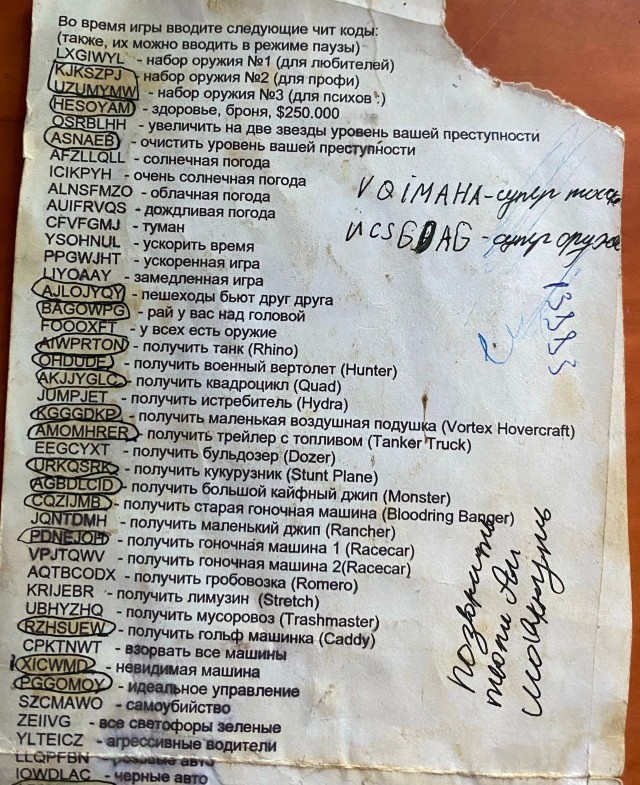 Во время игры вводите следующие чит коды:
(также, их можно вводить в режиме паузы)
LXGIWYL - набор оружия №1 (для любителей)
KJKSZPJ - набор оружия №2 (для профи)
UZUMYMW - набор оружия №3 (для психов :)
HESOYAM - здоровье, броня, $250.000
OSRBLHH - увеличить на две звезды уровень вашей преступности
ASNAEB - очистить уровень вашей преступности
AFZLLQLL - солнечная погода
ICIKPYH - очень солнечная погода
ALNSFMZO - облачная погода
AUIFRVQS - дождливая погода
CFVFGMJ - туман
YSOHNUL - ускорить время
PPGWJHT - ускоренная игра
LIYOAAY - замедленная игра
AJLOJYQY - пешеходы бьют друг друга
BAGOWPG - рай у вас над головой
FOOOXFT - у всех есть оружие
AIWPRTON - получить танк (Rhino)
OHDUDE - получить военный вертолет (Hunter)
AKJJYGLC - получить квадроцикл (Quad)
JUMPJET - получить истребитель (Hydra)
KGGGDKP - получить маленькая воздушная подушка (Vortex Hovercraft)
AMOMHRER - получить трейлер с топливом (Tanker Truck)
EEGCYXT - получить бульдозер (Dozer)
URKQSRK - получить кукурузник (Stunt Plane)
AGBDLCID - получить большой кайфный джип (Monster)
CQZIJMB - получить старая гоночная машина (Bloodring Banger)
JQNTDMH - получить маленький джип (Rancher)
PDNEJOH - получить гоночная машина 1 (Racecar)
VPJTQWV - получить гоночная машина 2(Racecar)
AQTBCODX - получить гробовозка (Romero)
KRIJEBR - получить лимузин (Stretch)
UBHYZHQ - получить мусоровоз (Trashmaster)
RZHSUEW - получить гольф машинка (Caddy)
CPKTNWT - взорвать все машины
XICWMD - невидимая машина
PGGOMOY - идеальное управление
SZCMAWO - самоубийство
ZEIIVG - все светофоры зеленые
YLTEICZ - агрессивные водители
LLQPFBN - розовые авто
IOWDLAC - черные авто
VQiMAHA-супер
-супер оружие
позвонить